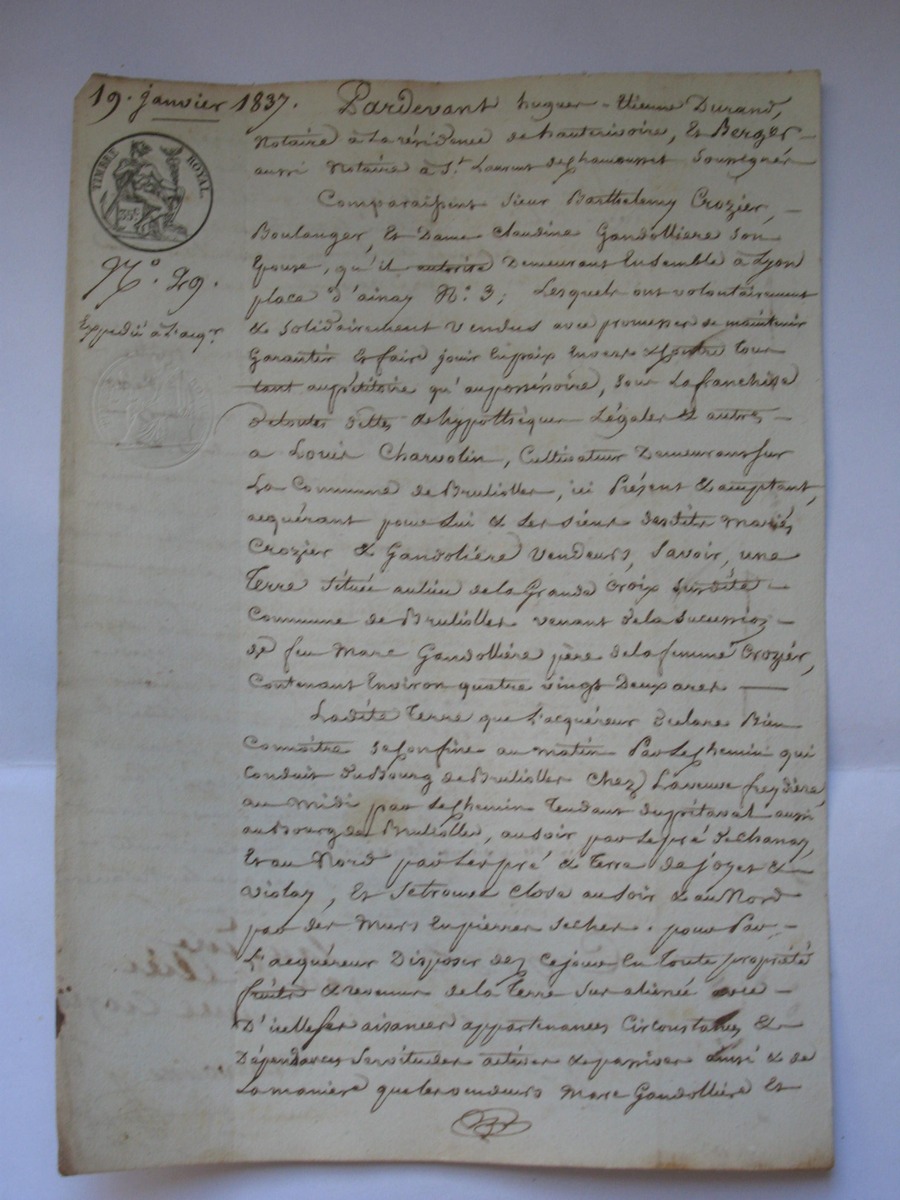 19. janvier 1837. Pardevant hugues-Etienne Durand,
Notaire à La résidence de hauterivoire, Et Berger
aussi Notaire à St. Laurent de Chamousset Soussignés
TIMBRE ROYAL
35c
Comparaissent Sieur Barthelemy Crozier,
Boulanger, Et Dame Claudine Gandolliere Son
Epouse, qu'il autorise Demeurant Ensemble à Lyon
N.o 29.
place d'ainay N.o 3; Lesquels ont volontairement
Expédié à L'acqr
& Solidairement Vendus avec promesses de maintenir
Garantir Et faire jouir En paix Envers & Contre tous
tant au pétitoire qu'au possessoire, Sous La franchise
De toutes dettes de hypothèques Légales & autres
a Louis Charvolin, Cultivateur Demeurant Sur
La Commune de Brullioles, ici Présent & acceptant,
acquérant pour Lui & Les siens desdits mariés
Crozier & Gandolière Vendeurs, Savoir, une
Terre Située au lieu de La Grande Croix Susdite
Commune de Brullioles venant de La Succession
de feu Marc Gandollière père de La femme Crozier,
Contenant Environ quatre vingt Deux ares
Ladite Terre que L'acquéreur Déclare Bien
Connoître Se Confine au matin Par Le Chemin qui
Conduit Du Bourg de Brullioles Chez La veuve freydière,
au midi par Le Chemin Tendant du pitaval aussi
au Bourg de Brullioles, au Soir par Le pré de Chanay,
Et au Nord par Les pré & Terre de joyet &
Violay, Et Se trouve Close au Soir & au Nord
par des Murs En pierres Seches. pour Par
L'acquéreur Disposer dez Ce jour En Toute propriété
fruits & revenus de La Terre Sus aliénée avec
D'icelle Ses aisances appartenances Circonstances &
Dépendances Servitudes actives & passives ainsi & de
La manière que Les vendeurs Marc Gandollière Et